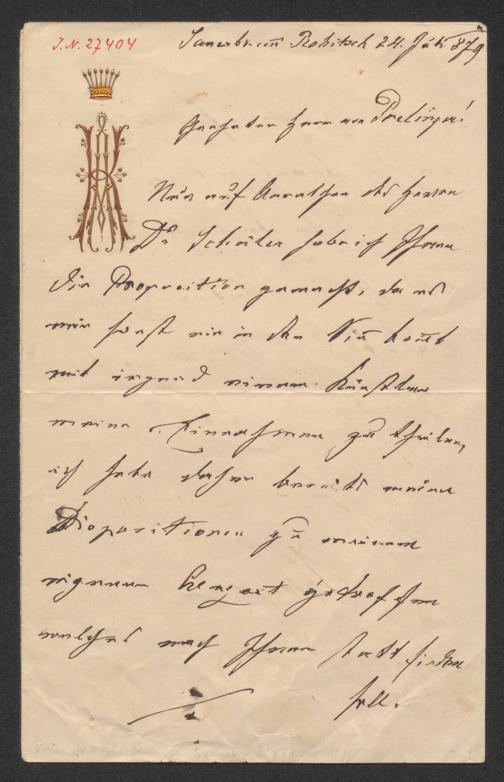 J.N. 27404
Sauerbrunn Rohitsch 24. Juli 879
Geehrter Herr von Prelinger!
Nur auf Anrathen des Herrn
Dr Schüler habe ich Ihnen
die Proposition gemacht, da es
mir sonst nie in den Sinn kommt
mit irgend einem Künstler
meine Einnahmen zu theilen,
ich habe daher bereits meine
Dispositionen zu meinem
eigenen Concert getroffen
welches nach Ihrem stattfinden
soll.